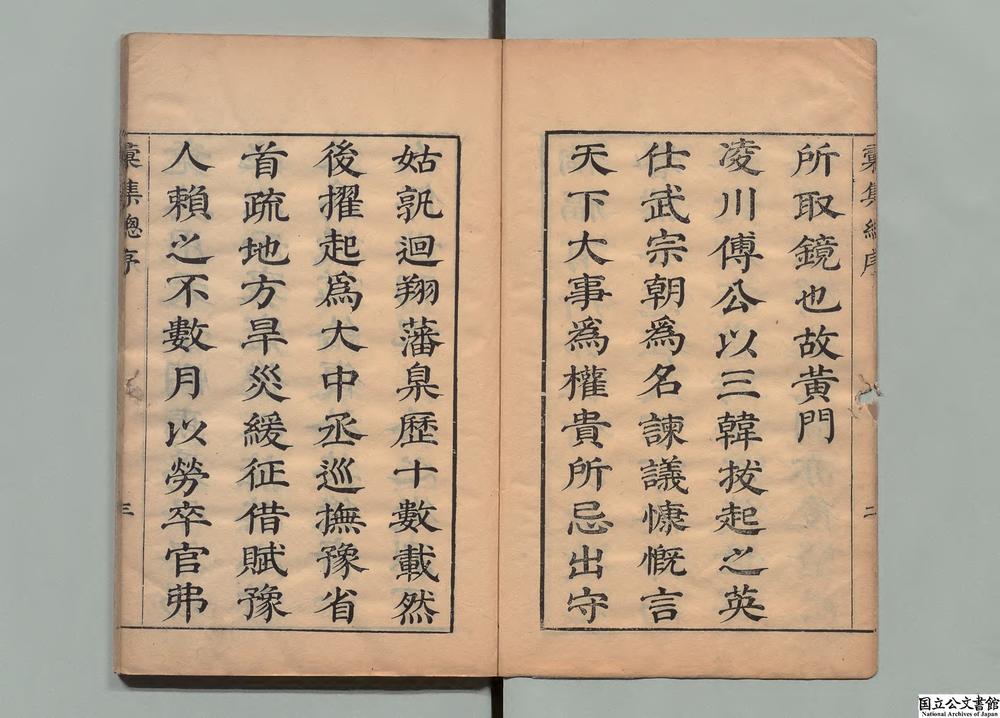 所取鏡也故黄門
凌川傅公以三韓拔起之英
仕武宗朝爲名諫議慷慨言
天下大事爲權貴所忌出守
二
姑孰迴翔藩臬歷十數載然
後擢起爲大中丞巡撫豫省
首疏地方旱災緩征借賦豫
人賴之不數月以勞卒官弗
彙集總序
三
国立公文書館
National Archives of Japan